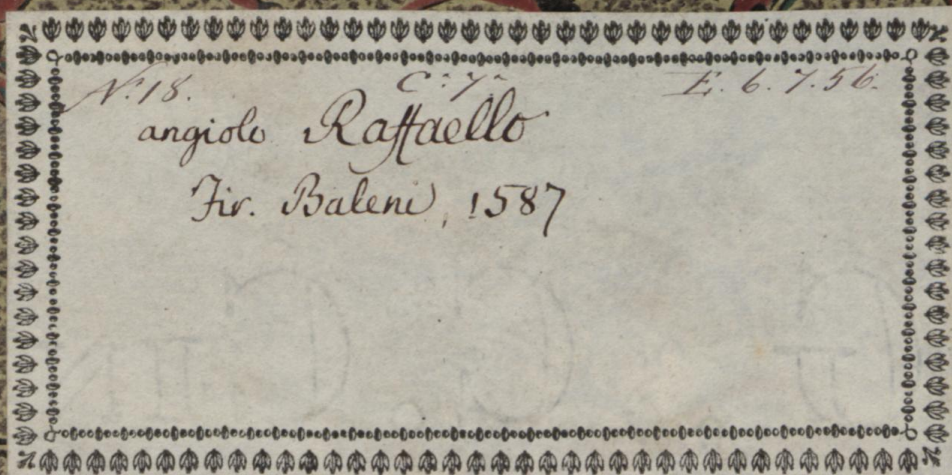 N.º 18. C.ª 7.ª E. 6. 7. 56.
angiolo Raffaello
Fir. Baleni, 1587